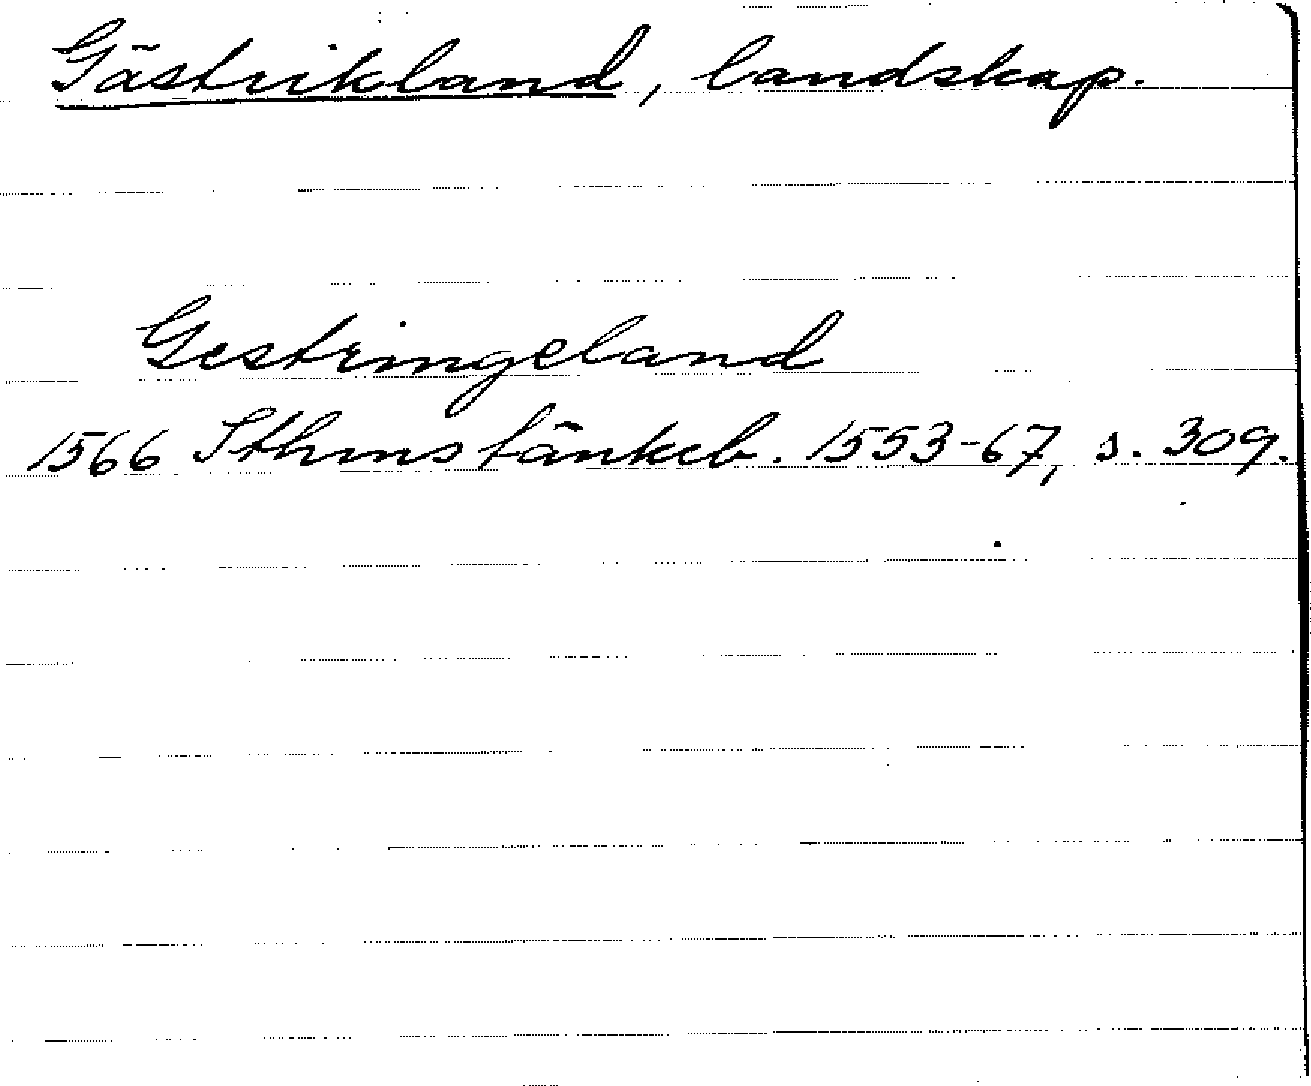 Gästrikland, landskap.
Gestringeland
1566 Sthms tänkeb. 1553-67, s. 309.